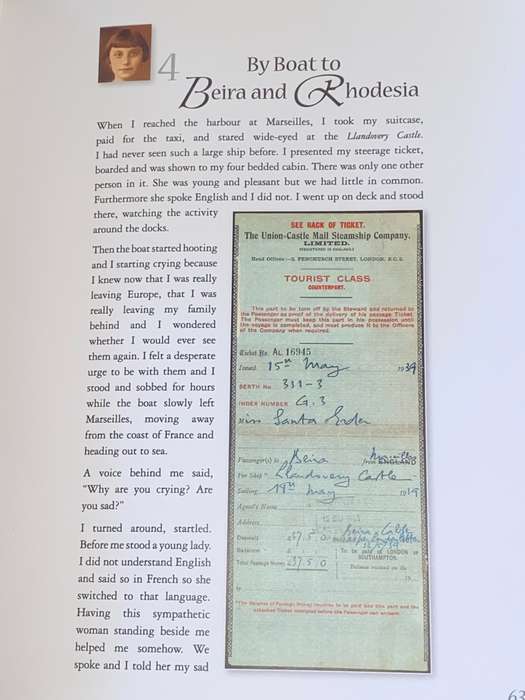 4
By Boat to
Beira and Rhodesia
When I reached the harbour at Marseilles, I took my suitcase,
paid for the taxi, and stared wide-eyed at the Llandovery Castle.
I had never seen such a large ship before. I presented my steerage ticket,
boarded and was shown to my four bedded cabin. There was only one other
person in it. She was young and pleasant but we had little in common.
Furthermore she spoke English and I did not. I went up on deck and stood
there, watching the activity
around the docks.
Then the boat started hooting
and I starting crying because
I knew now that I was really
leaving Europe, that I was
really leaving my family
behind and I wondered
whether I would ever see
them again. I felt a desperate
urge to be with them and I
stood and sobbed for hours
while the boat slowly left
Marseilles, moving away
from the coast of France and
heading out to sea.
A voice behind me said,
"Why are you crying? Are
you sad?"
I turned around, startled.
Before me stood a young lady.
I did not understand English
and said so in French so she
switched to that language.
Having this sympathetic
woman standing beside me
helped me somehow. We
spoke and I told her my sad
SEE BACK OF TICKET.
The Union-Castle Mail Steamship Company,
LIMITED.
Head Offices—3, FENCHURCH STREET, LONDON, E.C.3.
TOURIST CLASS
COUNTERPART.
This part to be torn off by the Steward and returned to
the Passenger as proof of the delivery of his passage Ticket.
The Passenger must keep this part in his possession until
the voyage is completed, and must produce it to the Officers
of the Company when required.
Ticket No. AL 16945
Issued 15th May 1939
BERTH No 311-3
INDEX NUMBER G.3
Miss Santa
Passenger(s) to Beira from Marseilles ENGLAND
Per Ship Llandovery Castle
Sailing 19th May 19
Agent's Name
Address
Deposit £37.5.0
Balance £
To be paid at LONDON or
SOUTHAMPTON.
Total Passage Money £37.5.0
Balance received on the
63